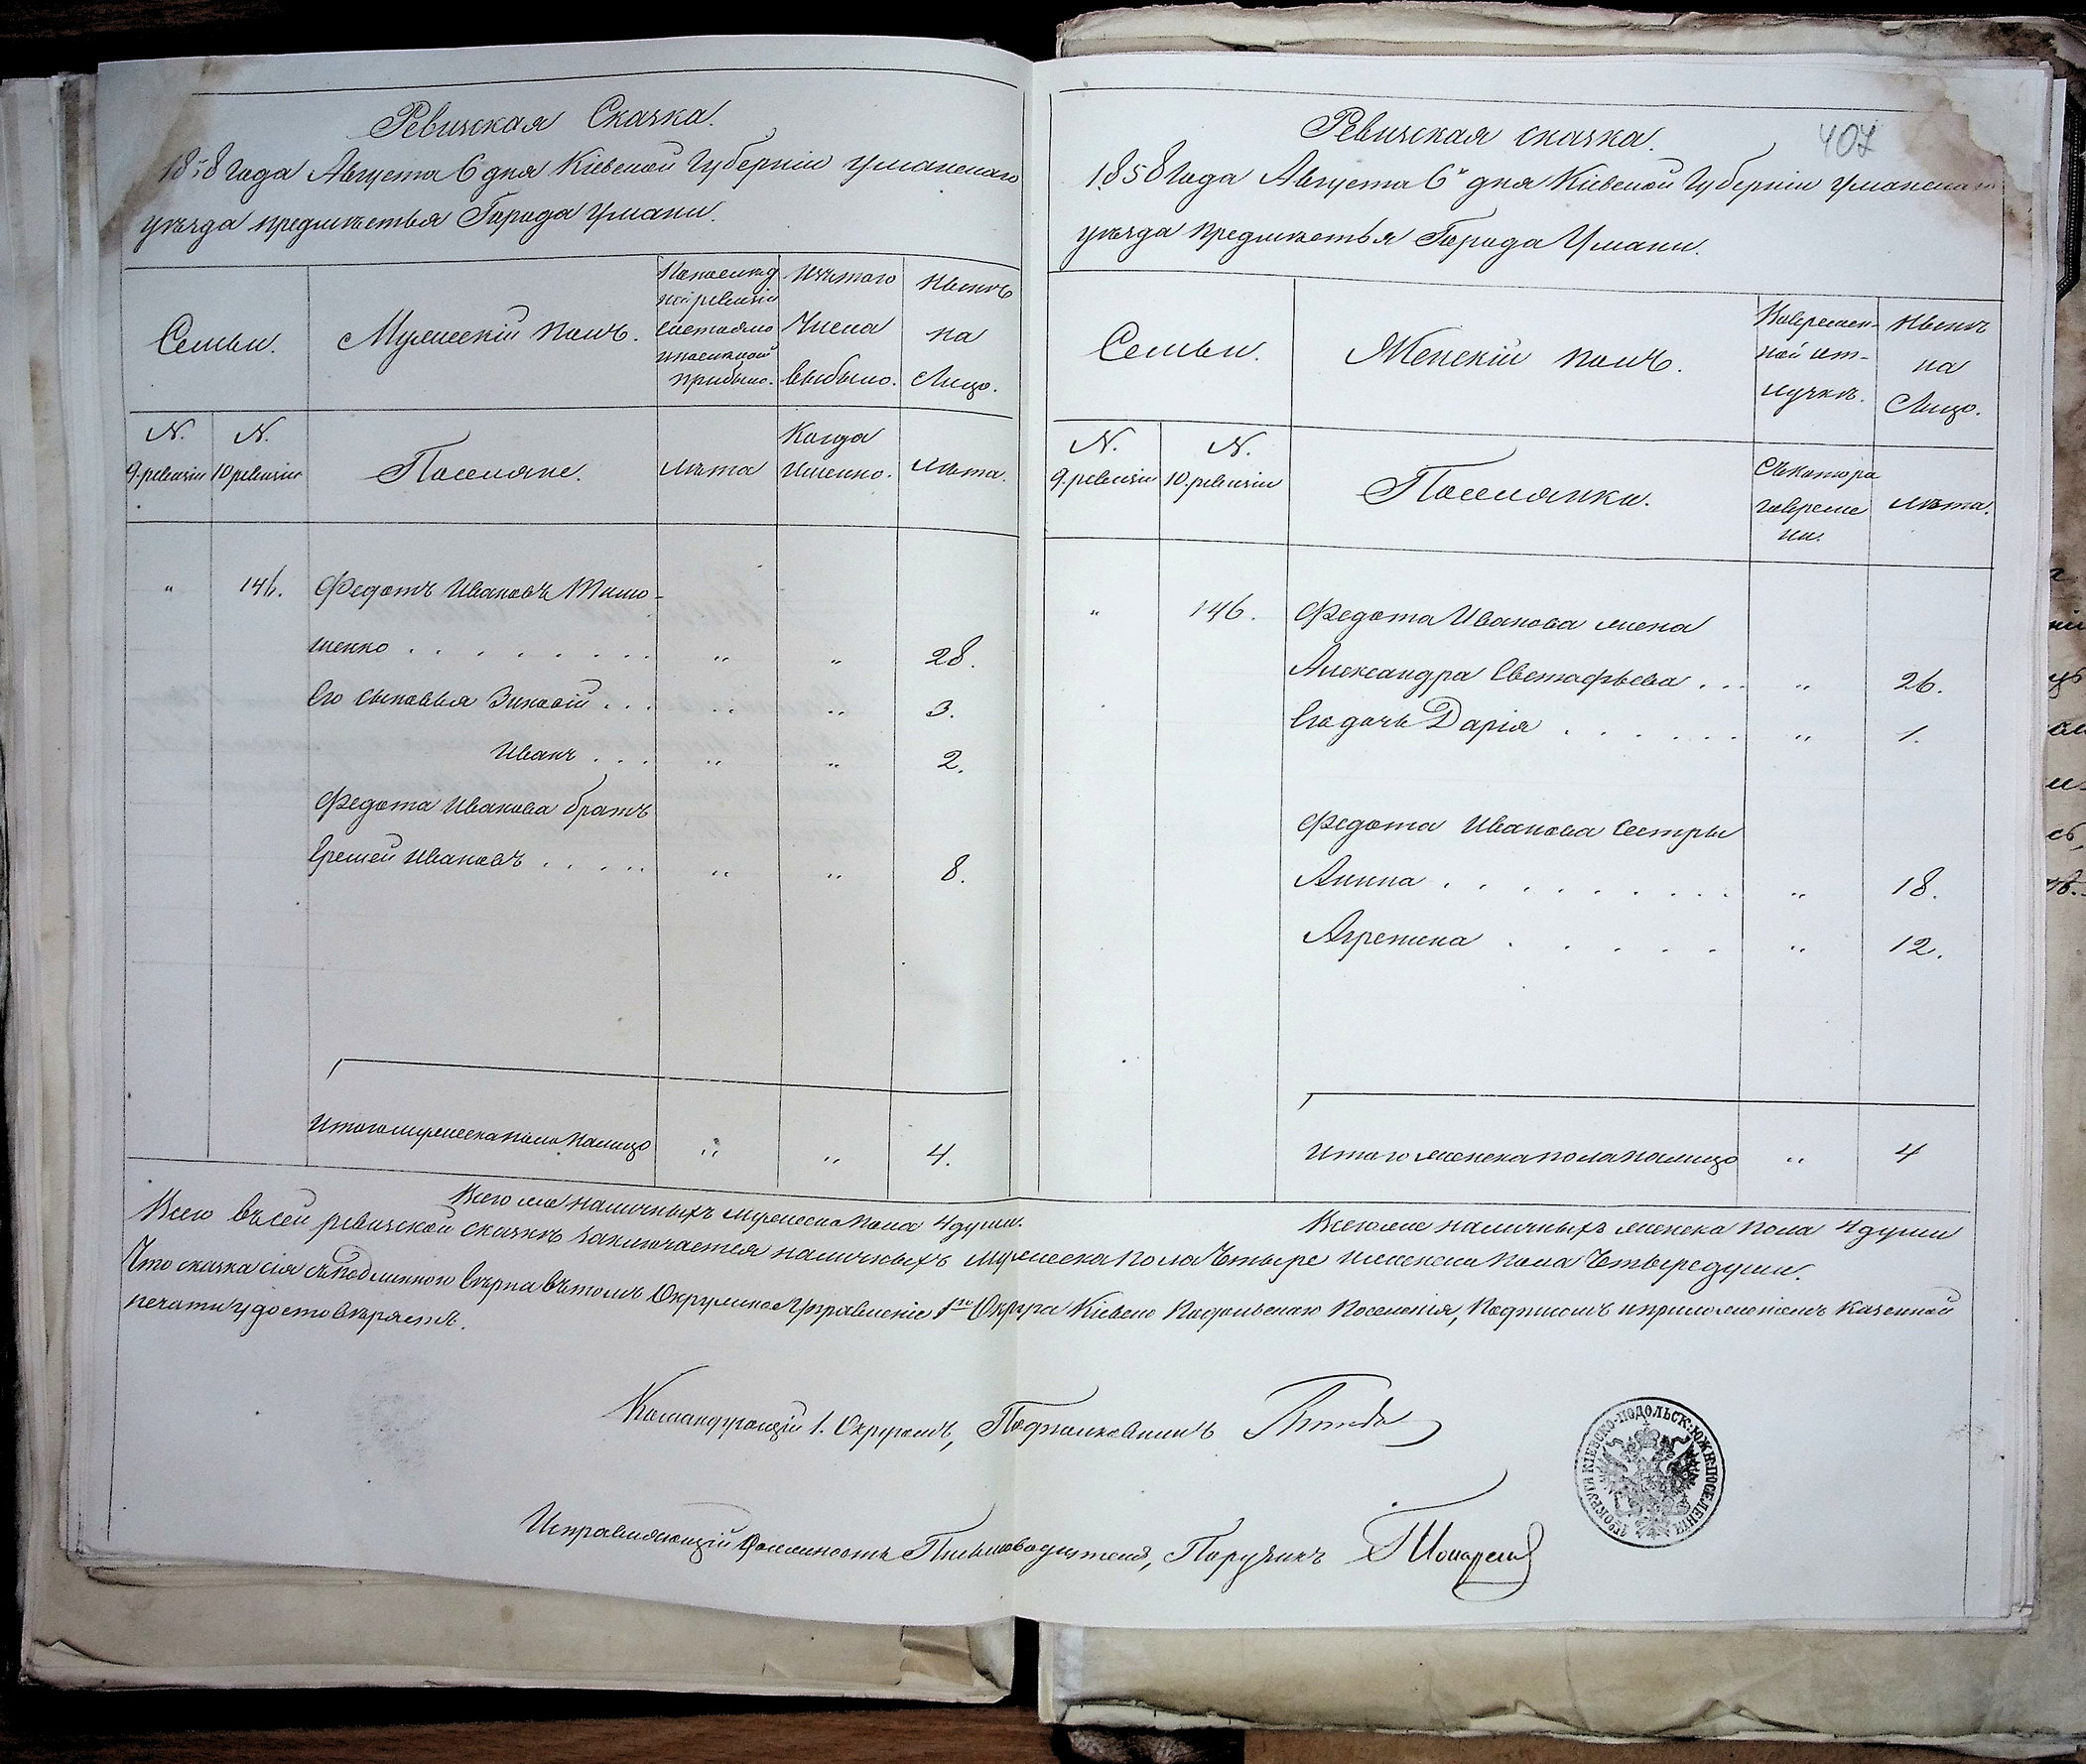 Ревизская Сказка.
1858 года Августа 6 дня Кіевской Губерніи Уманскаго
уѣзда предмѣстья Города Умани.
Семьи.
Мужескій полъ.
По послѣд
ней ревизіи
состояло
и послѣ той
прибыло.
Изъ того
Числа
выбыло.
Нынѣ
на
Лицо.
N.
9. ревизіи
N.
10 ревизіи
Поселяне.
Лѣта
Когда
Именно.
Лѣта.
"
146.
Федотъ Ивановъ Тимо-
шенко . . . . . . . . " " 28.
Его сыновья Зиновій . . . " " 3.
Иванъ . . . " " 2.
Федота Иванова братъ
Еремей Ивановъ . . . . . " " 8.
Итого мужеска пола на лицо " " 4.
Всего же наличныхъ мужеска пола 4 души.
407
Ревизская сказка.
1858 года Августа 6 дня Кіевской Губерніи Уманскаго
уѣзда предмѣстья Города Умани.
Семьи.
Женскій полъ.
Во времен-
ной от-
лучкѣ.
Нынѣ
на
Лицо.
N.
9. ревизіи
N.
10. ревизіи
Поселянки.
Съ котора
го време
ни.
Лѣта.
"
146.
Федота Иванова жена
Александра Евстафьева . . . " 26.
Его дочь Дарія . . . . . . " 1.
Федота Иванова Сестры
Анна . . . . . . . . . " 18.
Агрепина . . . . . " 12.
Итого женска пола на лицо " 4
Всего же наличныхъ женска пола 4 души
Всего въ сей ревизской сказкѣ заключается наличныхъ мужеска пола Четыре и женска пола Четыре души.
Что сказка сія съ подлинною вѣрна въ томъ Окружное Управленіе 1го Округа Кіевско Подольскаго Поселенія, Подписомъ и приложеніемъ казенной
печати удостовѣряетъ.
Командующій 1. Округомъ, Подполковникъ
Исправляющій Должность Письмоводителя, Поручикъ
1го ОКРУГА КІЕВСКО-ПОДОЛЬСК: ЮЖН: ПОСЕЛЕНІЯ